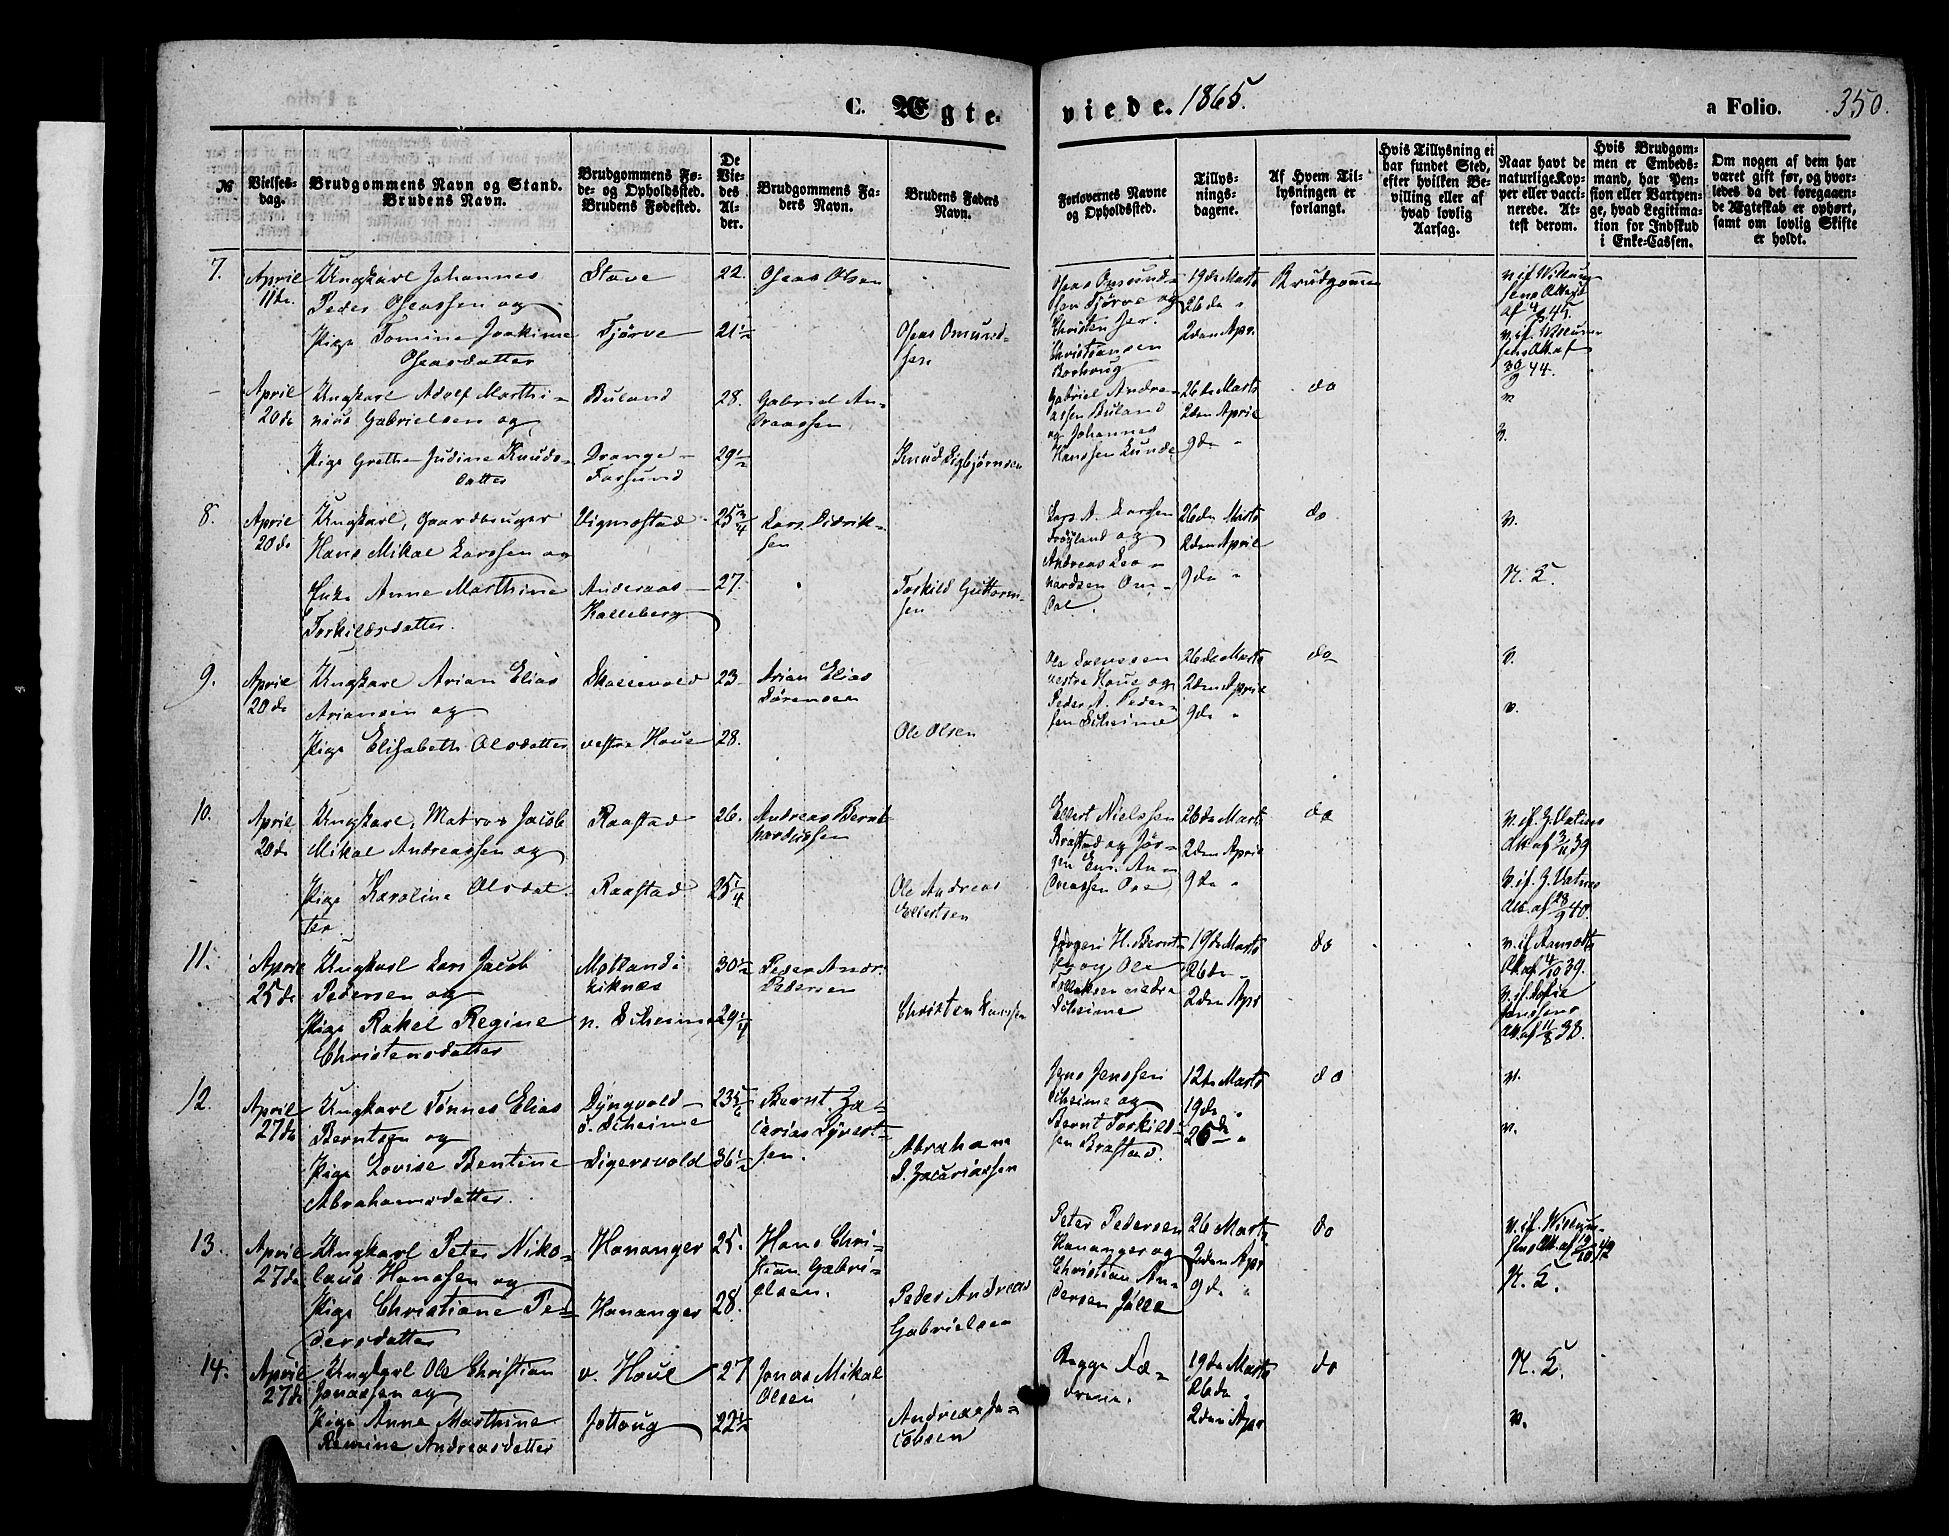 C. Ægte-
viede. 1865.
a Folio. 350.
№
Vielses-
dag.
Brudgommens Navn og Stand.
Brudens Navn.
Brudgommens Fø-
de- og Opholdssted.
Brudens Fødested.
De
Vie-
des
Al-
der.
Brudgommens Fa-
ders Navn.
Brudens Faders
Navn.
Forlovernes Navne
og Opholdssted.
Tillys-
nings-
dagene.
Af Hvem Til-
lysningen er
forlangt.
Hvis Tillysning ei
har fundet Sted,
efter hvilken Be-
villing eller af
hvad lovlig
Aarsag.
Naar havt de
naturlige Kop-
per eller vacci-
nerede. At-
test derom.
Hvis Brudgom-
men er Embeds-
mand, har Pen-
sion eller Vartpen-
ge, hvad Legitima-
tion for Indskud
i Enke-Cassen.
Om nogen af dem har
været gift før, og hvor-
ledes da det foregaaen-
de Ægteskab er ophørt,
samt om lovlig Skifte
er holdt.
7.
April
11de
Ungkarl Johannes
Peder Oseassen og
Pige Tomine Joakime
Oseasdatter
Stave
Tjørve
22.
21 1/2
Oseas Olsen
Oseas Omund-
sen
Oseas Omund-
sen Tjørve og
Christen
Christiansen
19de Marts
26de "
2den Apr.
Brudgommen
April
20de
Ungkarl Adolf Marthi-
nius Gabrielsen og
Pige Grethe Judine Knuds-
datter
Buland
Drange -
Farsund
28.
29 1/2
Gabriel An-
dreassen
Knud Sigbjørnsen
Gabriel Andre-
assen Buland
og Johannes
Hanssen Lunde
26de Marts
2den April
9de "
do
v
v.
8.
April
20de
Ungkarl, Gaardbruger
Hans Mikal Larssen og
Enke Anne Marthine
Torkildsdatter.
Vigmostad
Anderaas -
Halleberg
25 3/4
27.
Lars Didrik-
sen
Torkild Guttorm-
sen
Lars A. Larssen
og
Andreas Leo-
nardsen Om-
dal.
26de Marts
2den April
9de "
do
v.
N. S.
9.
April
20de
Ungkarl Arian Elias
Ariansen og
Pige Elisabeth Olsdatter
Skollevold
vestre Haue
23
28.
Arian Elias
Sørensen
Ole Olsen
Ole Svenssen
vestre Haue og
Peder A. Peder-
sen Scheime
26de Marts
2den April
9de "
do
v.
v.
10.
April
20de
Ungkarl, Matros Jacob
Mikal Andreassen og
Pige Karoline Olsdat-
ter.
Raastad
Raastad
26.
25 1/4
Andreas Bernt
Ole Andreas
Ellertsen
Ellert Nielssen
Brastad og Jør-
gen Enr. An-
dreassen Ore
26de Marts
2den April
9de "
do
v. if. J. Vatnes
Att. af 3/11 39
v. if. J. Vatnes
Att. af 28/9 40.
11.
April
25de
Ungkarl Lars Jacob
Pedersen og
Pige Rakel Regine
Christensdatter
n. Scheime
30 1/2
29 1/4
Peder Andr.
Pedersen
Christen Larssen
Jørgen H. Bernt-
og Ole
Tollaksen nedre
Scheime
19de Marts
26de "
2den Apr
do
12.
April
27de
Ungkarl Tønnes Elias
Berntsen og
Pige Lovise Bentine
Abrahamsdatter.
Dyngvold -
Scheime
Sigersvold
23 5/6
36 1/2
Bernt Za-
carias Syvert-
sen.
Abraham
S. Zacariassen
Jens Jenssen
Scheime og
Bernt Torkild-
sen Brastad.
12te Marts
19de "
26de "
do
v.
v.
13.
April
27de
Ungkarl Peter Niko-
laus Hanssen og
Pige Christiane Pe-
dersdatter
Hananger
Hananger
25.
28.
Hans Chri-
stian Gabri-
elsen.
Peder Andreas
Gabrielsen
Peter Pedersen
Hananger og
Christian An-
dersen Jølle
26 Marts
2den Apr
9de "
do
N. S.
14.
April
27de
Ungkarl Ole Christian
Jonassen og
Pige Anne Marthine
Remine Andreasdatter
v. Haue
Jottoug
27
22 1/2
Jonas Mikal
Olsen
Andreas Ja-
cobsen
Begge Fæ-
drene.
19de Marts
26de "
2den Apr
do
N. S.
v.